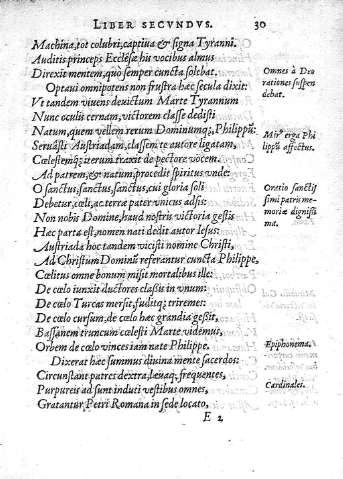 LIBER SECVNDVS. 30
Machina, tot colubri, captiua & signa Tyranni.
Auditis princeps Ecclesæ his vocibus almus
Direxit mentem, quò semper cuncta solebat.
Optaui omnipotens non frustra hæc secula dixit:
Vt tandem viuens deuictum Marte Tyrannum
Nunc oculis cernam, victorem classe dedisti
Natum, quem vellem rerum Dominumq; Philippũ:
Seruasti Austriadam, classem te autore ligatam,
Cœlestemq; iterum traxit de pectore vocem.
Ad patrem, & natum, procedit spiritus vnde:
O sanctus, sanctus, sanctus, cui gloria soli
Debetur, cœlũ, ac terra pater vnicus adsis:
Non nobis Domine, haud nostris victoria gestis
Hæc parta est, nomen nati dedit autor Iesus:
Austriada hoc tandem vicisti nomine Christi,
Ad Christum Dominũ referantur cuncta Philippe,
Cœlitus omne bonum misit mortalibus ille:
De cœlo iunxit ductores classis in vnum:
De cœlo Turcas mersit, fuditq; triremes:
De cœlo cursum, de cœlo hæc grandia gessit,
Bassanem truncum cœlesti Marte videmus,
Orbem de cœlo vinces iam nate Philippe.
Dixerat hæc summus diuina mente sacerdos:
Circunstant patres dextra, leuaq; frequentes,
Purpureis adsunt induti vestibus omnes,
Gratantur Petri Romana in sede locato,
E 2
Omnes à Deo
rationes suspen
debat.
erga Phi
lippũ affectus.
Oratio sanctis
simi patris me-
moriæ dignissi
ma.
Epiphonema.
Cardinales.